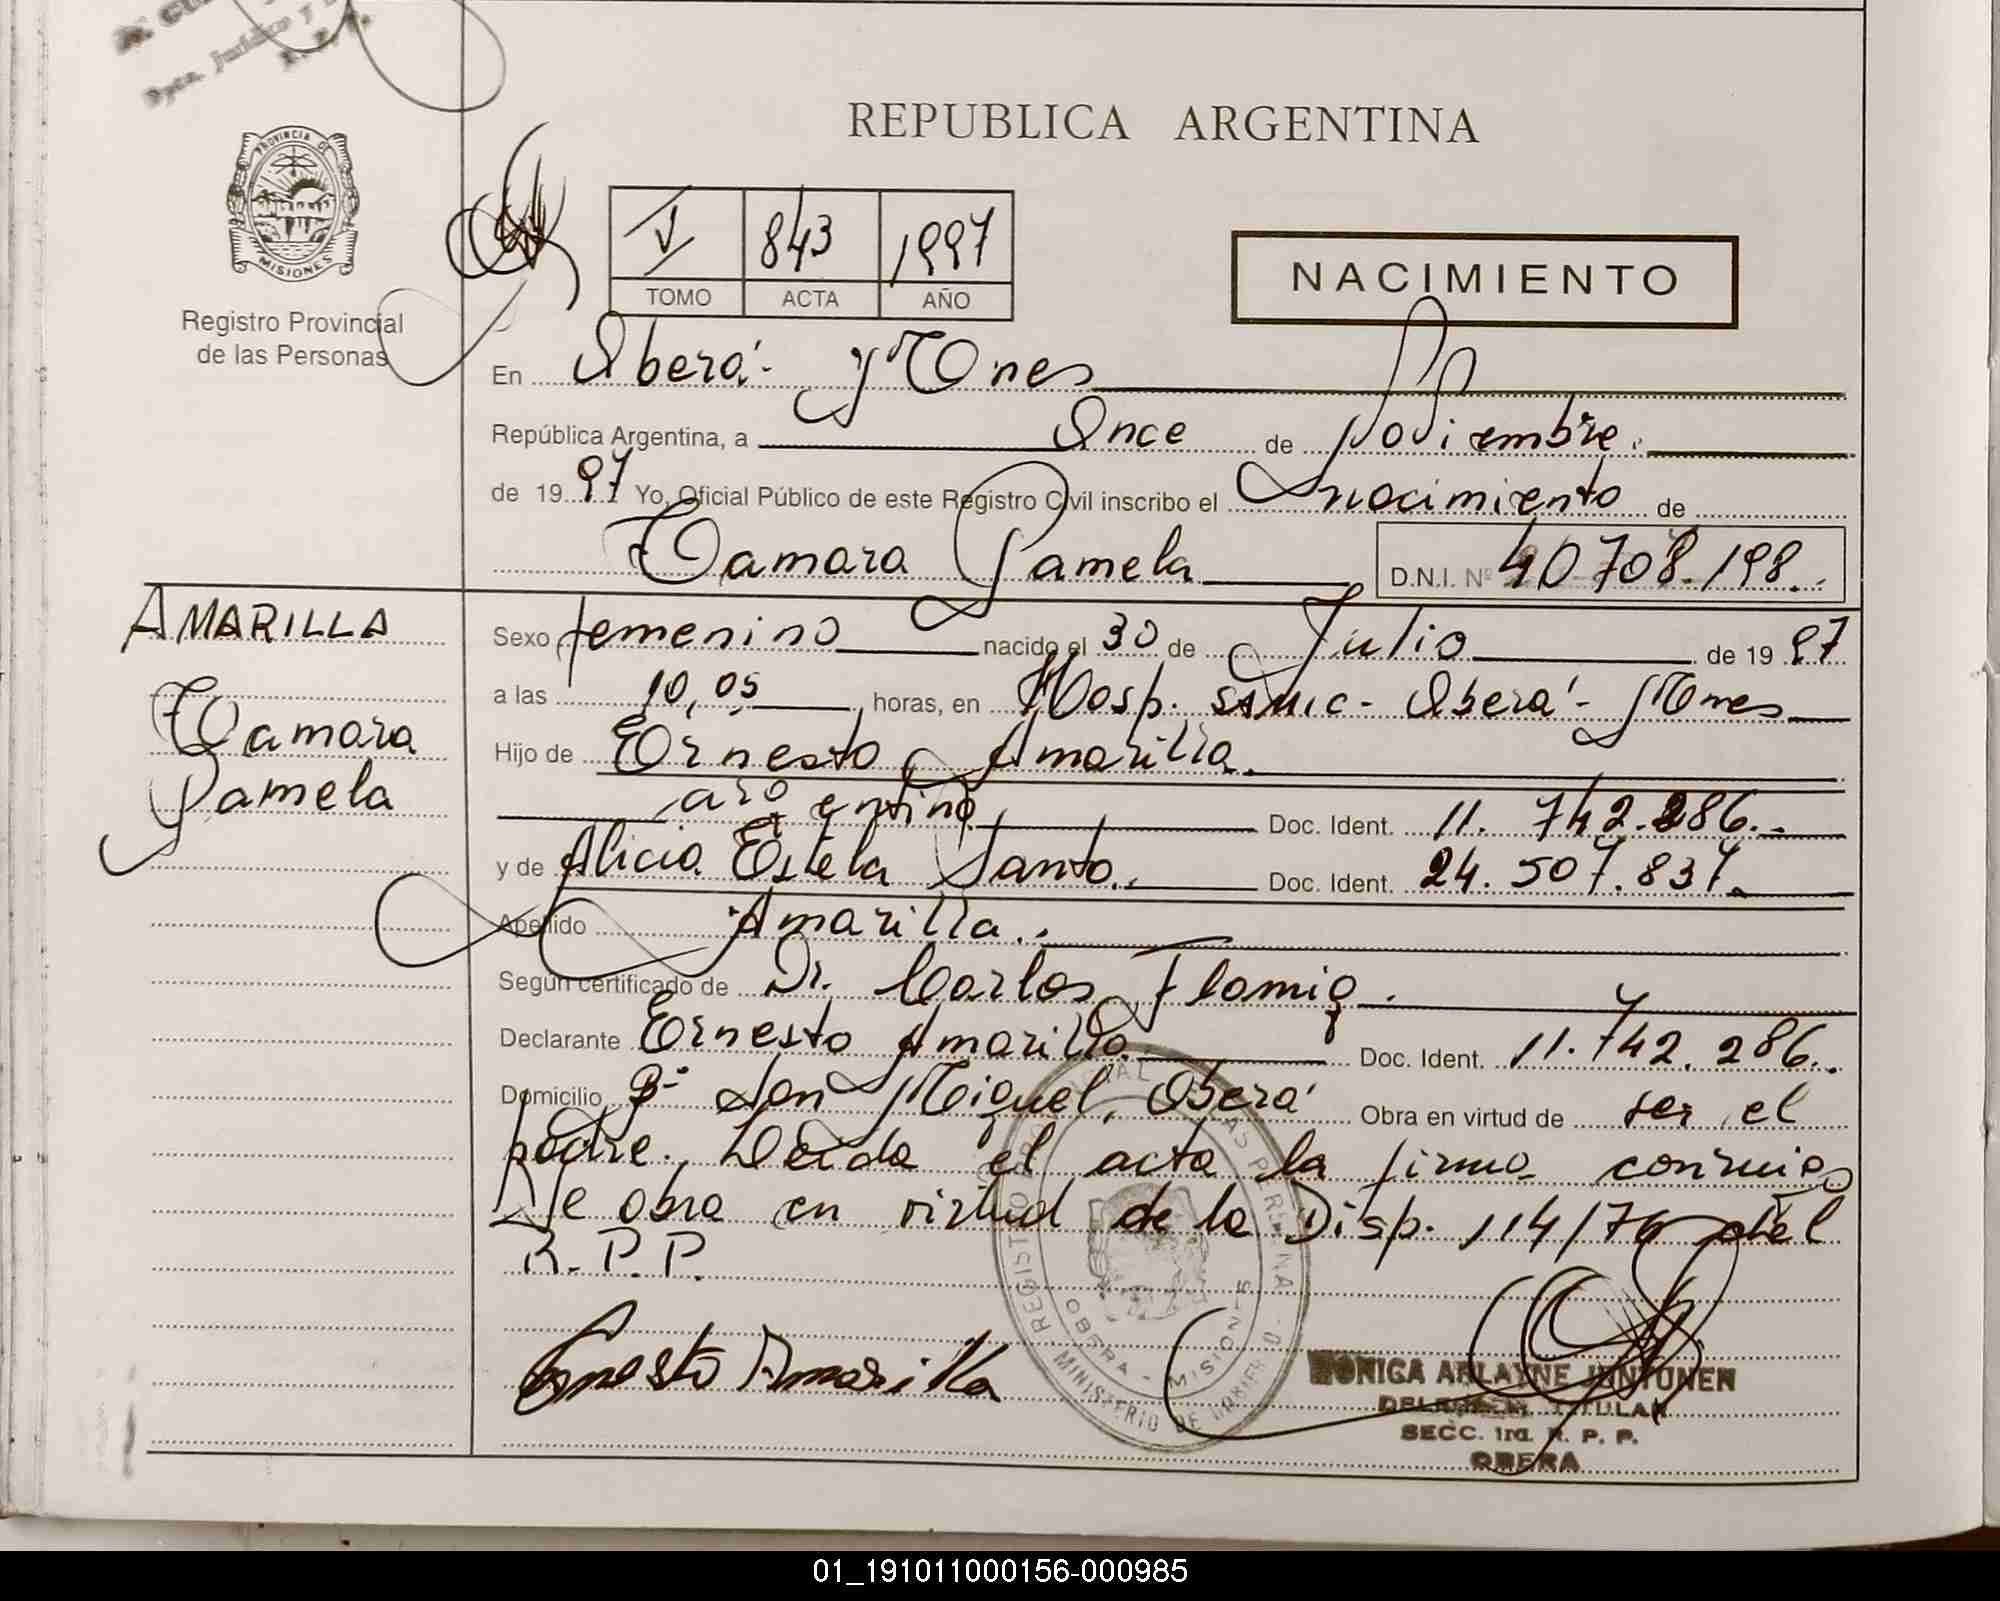 Dpto. Jurídico y
R. P. P.
PROVINCIA DE
MISIONES
Registro Provincial
de las Personas
REPUBLICA ARGENTINA
V 843 1997
TOMO ACTA AÑO
NACIMIENTO
En Oberá - Mnes
República Argentina, a Once de Noviembre.
de 1997 Yo, Oficial Público de este Registro Civil inscribo el nacimiento de
Tamara Pamela D.N.I. Nº 40.708.198.
AMARILLA
Tamara
Pamela
Sexo femenino nacido el 30 de Julio de 1997
a las 10,05 horas, en Hosp. SAMIC - Oberá - Mnes
Hijo de Ernesto Amarilla.
argentino Doc. Ident. 11.742.286.
y de Alicia Estela Santo. Doc. Ident. 24.507.837.
Apellido Amarilla.
Según certificado de Dr. Carlos Flamig.
Declarante Ernesto Amarilla Doc. Ident. 11.742.286.
Domicilio Bº San Miguel, Oberá Obra en virtud de ser el
padre. Leída el acta la firma conmigo
Se obra en virtud de la Disp. 114/76 del
R.P.P.
Ernesto Amarilla
REGISTRO PROVINCIAL DE LAS PERSONAS
OBERA - MISIONES
MINISTERIO DE GOBIERNO
MONICA ARLAYNE JUNTUNEN
DELEGADA TITULAR
SECC. 1ra. R. P. P.
OBERA
01_191011000156-000985